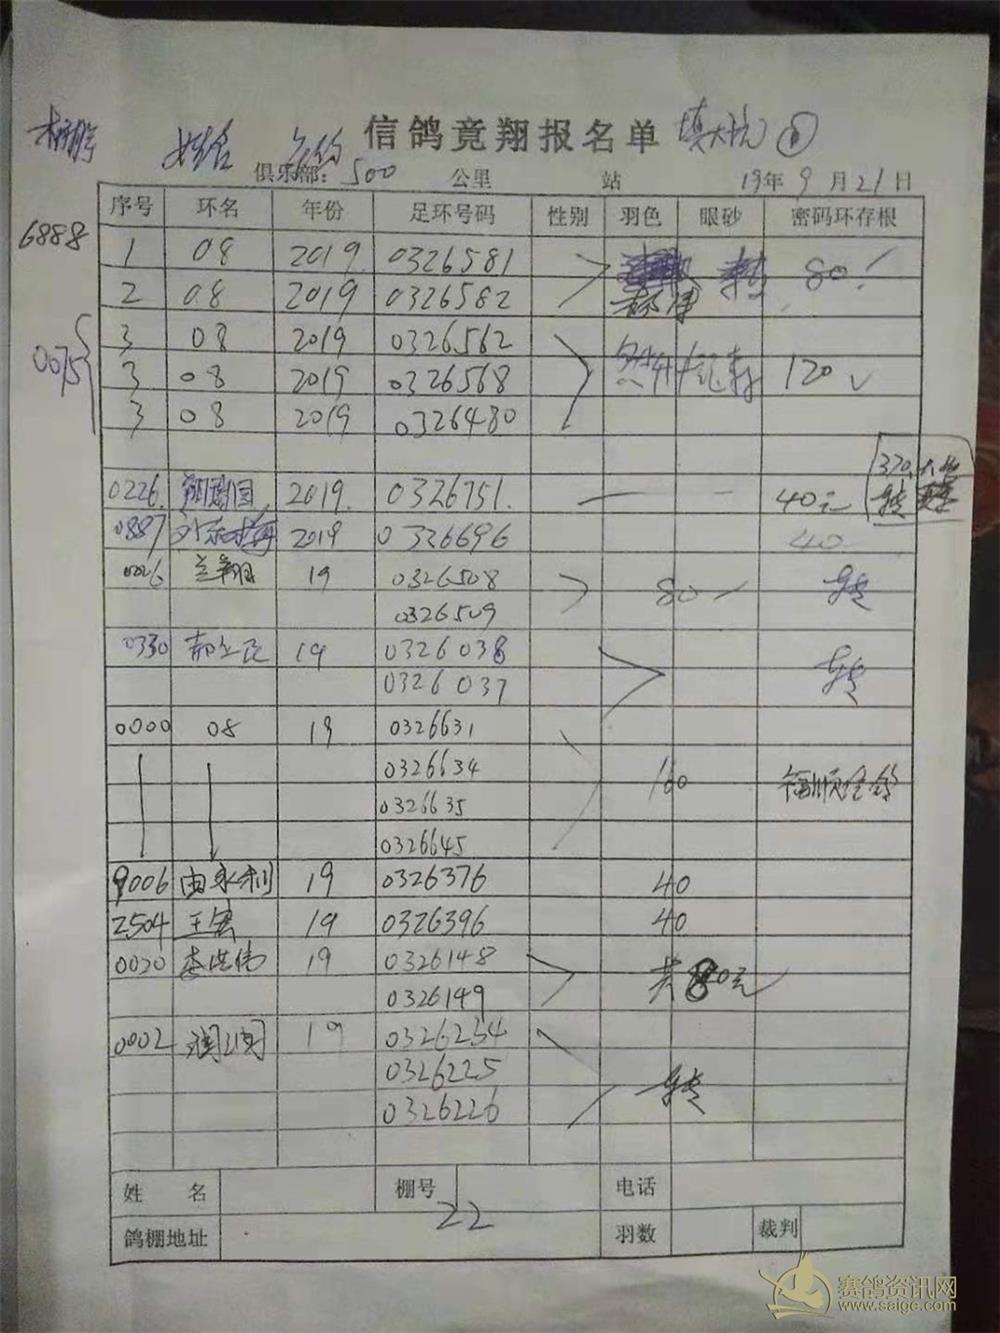 信鸽竞翔报名单
姓名
俱乐部: 500 公里 站 19年9月21日
序号 环名 年份 足环号码 性别 羽色 眼砂 密码环存根
6888
1 08 2019 0326581 80
2 08 2019 0326582
0075
3 08 2019 0326562
3 08 2019 0326568 120
3 08 2019 0326480
370
转
0226 2019 0326751 40元
0887 2019 0326696 40
0026 兰翔 19 0326508 80 转
0326509
0330 郝立民 19 0326038 转
0326037
0000 08 19 0326631
0326634 160
0326635
0326645
9006 由永利 19 0326376 40
2504 王宏 19 0326396 40
0020 李洪伟 19 0326148 共80元
0326149
0002 润润 19 0326234
0326225 转
0326226
姓 名 棚号 电话
22
鸽棚地址 羽数 裁判
赛鸽资讯网
www.saigc.com